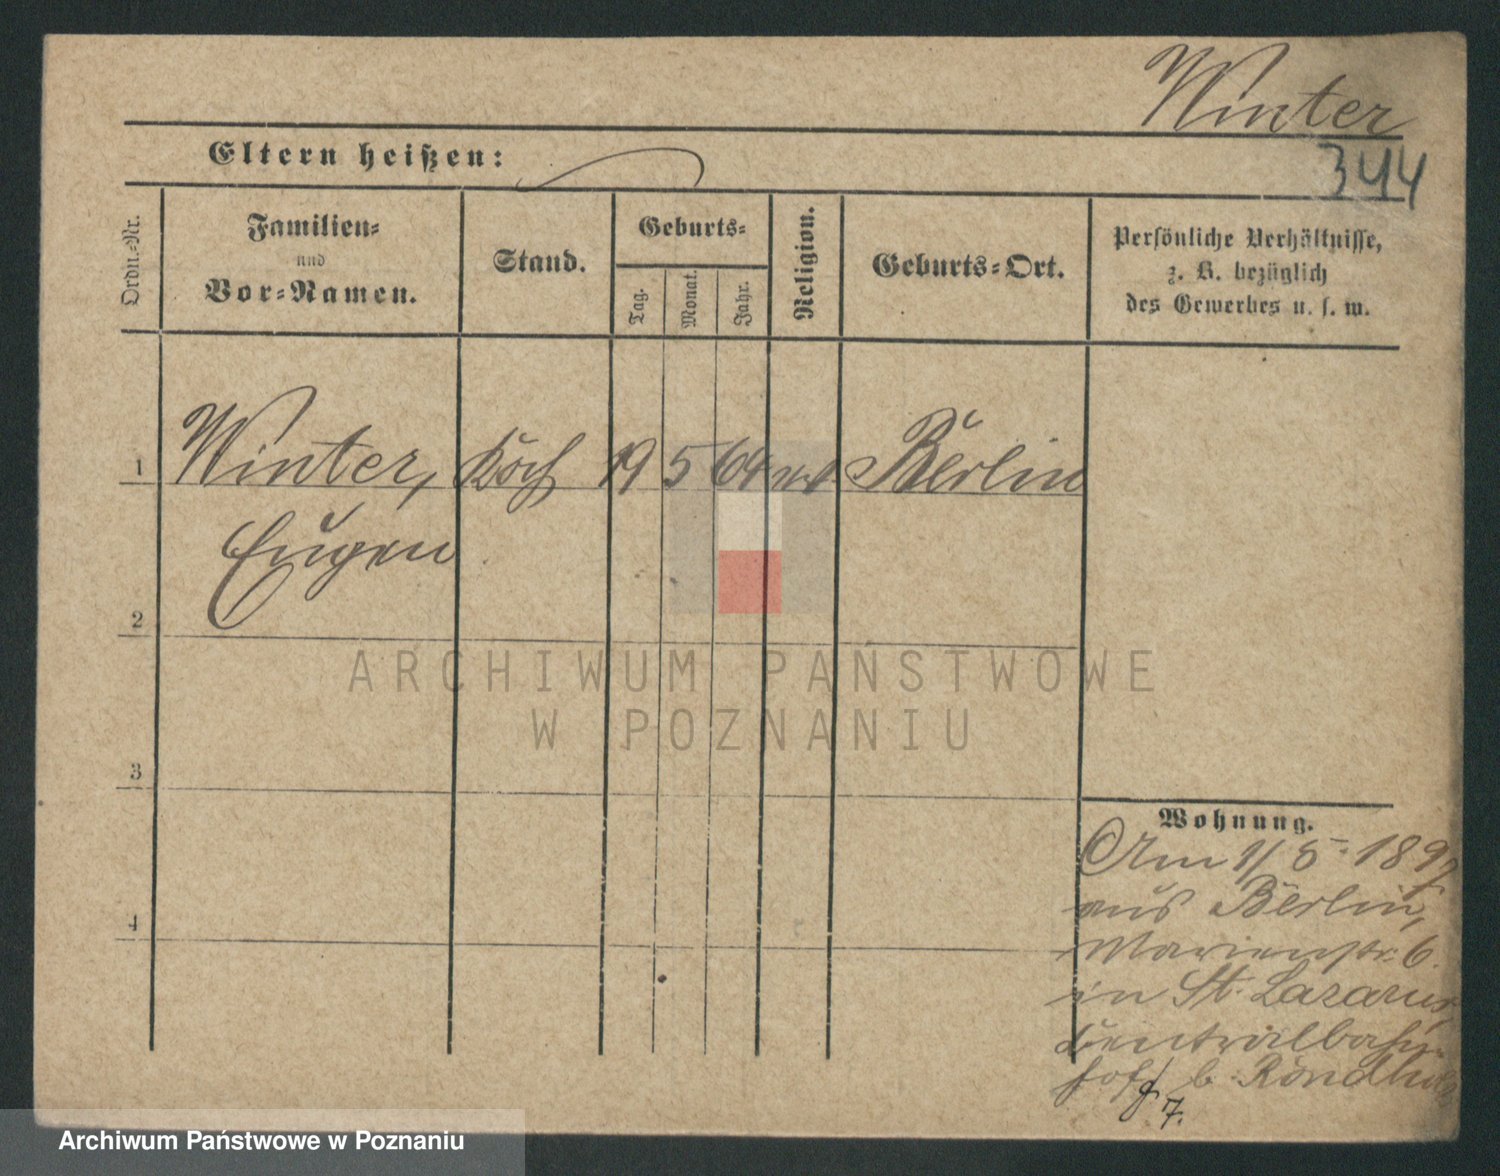 Winter
344
Eltern heißen:
Ordn.-Nr.
Familien-
und
Vor-Namen.
Stand.
Geburts-
Tag.
Monat.
Jahr.
Religion.
Geburts-Ort.
Persönliche Verhältnisse,
z. B. bezüglich
des Gewerbes u. s. w.
1 Winter, Koch 19 5 64 Berlin
Eugen
2
3
4
Wohnung.
Am 1/5. 1897
aus Berlin,
Marienstr. 6.
in St. Lazarus,
Centralbahn-
hof b.
7.
ARCHIWUM PAŃSTWOWE
W POZNANIU
Archiwum Państwowe w Poznaniu